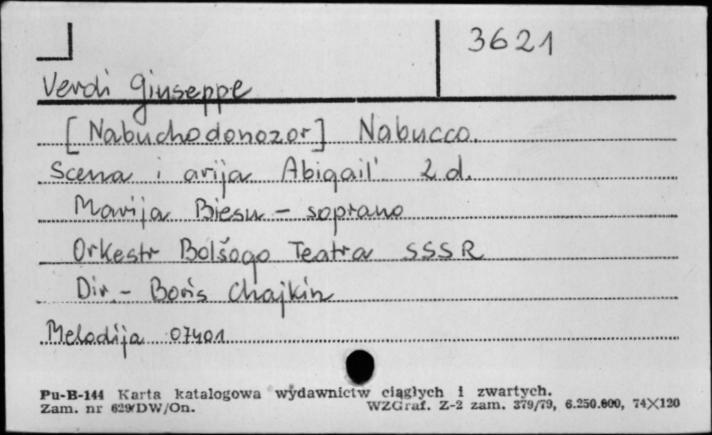 3621
Verdi Giuseppe
[Nabuchodonozor] Nabucco.
Scena i arija Abigail' 2 d.
Marija Biesu - soprano
Orkestr Bolšogo Teatra SSSR
Dir - Boris Chajkin
Melodija 07401
Pu-B-144 Karta katalogowa wydawnictw ciągłych i zwartych.
Zam. nr 629/DW/On. WZGraf. Z-2 zam. 379/79, 6.250.000, 74×120